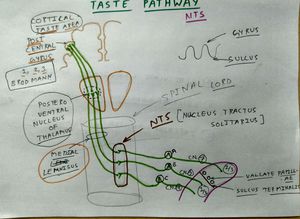 TASTE PATHWAY
NTS
CORTICAL
TASTE AREA
POST
CENTRAL
GYRUS
3, 1, 2
BRODMANN
GYRUS
SULCUS
SPINAL CORD
POSTERO
VENTRAL
NUCLEUS
OF
THALAMUS
NTS [NUCLEUS TRACTUS
SOLITARIUS]
MEDIAL
LEMNISCUS
A
B
C
CN
CN
CN
1/3
2/3
VALLATE PAPILL-
AE
SULCUS TERMINALIS